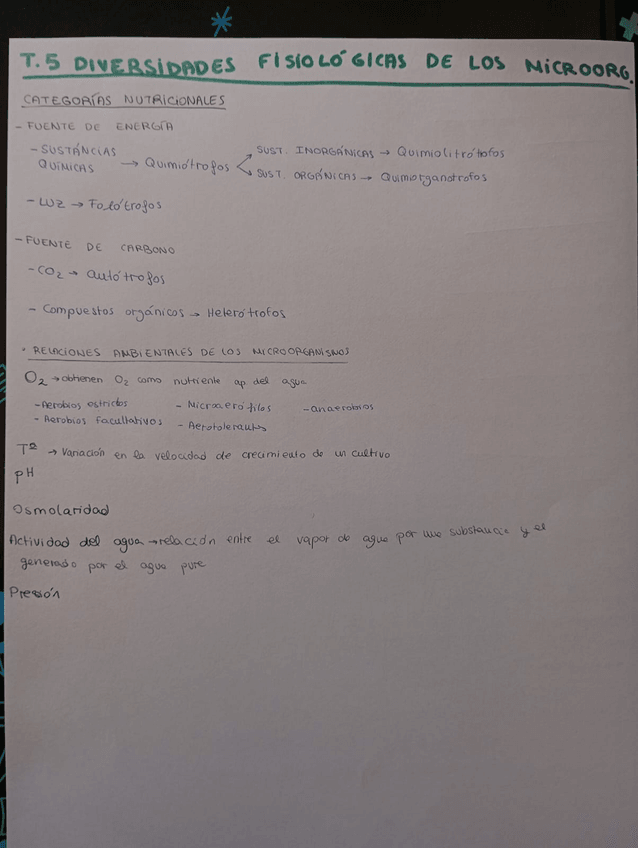 T.5 DIVERSIDADES FISIOLÓGICAS DE LOS MICROORG.
CATEGORÍAS NUTRICIONALES
- FUENTE DE ENERGÍA
- SUSTÁNCIAS QUÍMICAS → Quimiótrofos
SUST. INORGÁNICAS → Quimiolitrótofos
SUST. ORGÁNICAS → Quimiorganotrofos
- LUZ → Fotótrofos
- FUENTE DE CARBONO
- CO2 → autótrofos
- Compuestos orgánicos → Heterótrofos
· RELACIONES AMBIENTALES DE LOS MICROORGANISMOS
O2 → obtienen O2 como nutriente ap. del agua
- Aerobios estrictos - Microaerófilos - anaerobios
- Aerobios facultativos - Aerotolerantes
Tª → Variación en la velocidad de crecimiento de un cultivo
pH
Osmolaridad
Actividad del agua → relación entre el vapor de agua por una substancia y el
generado por el agua pura
Presión